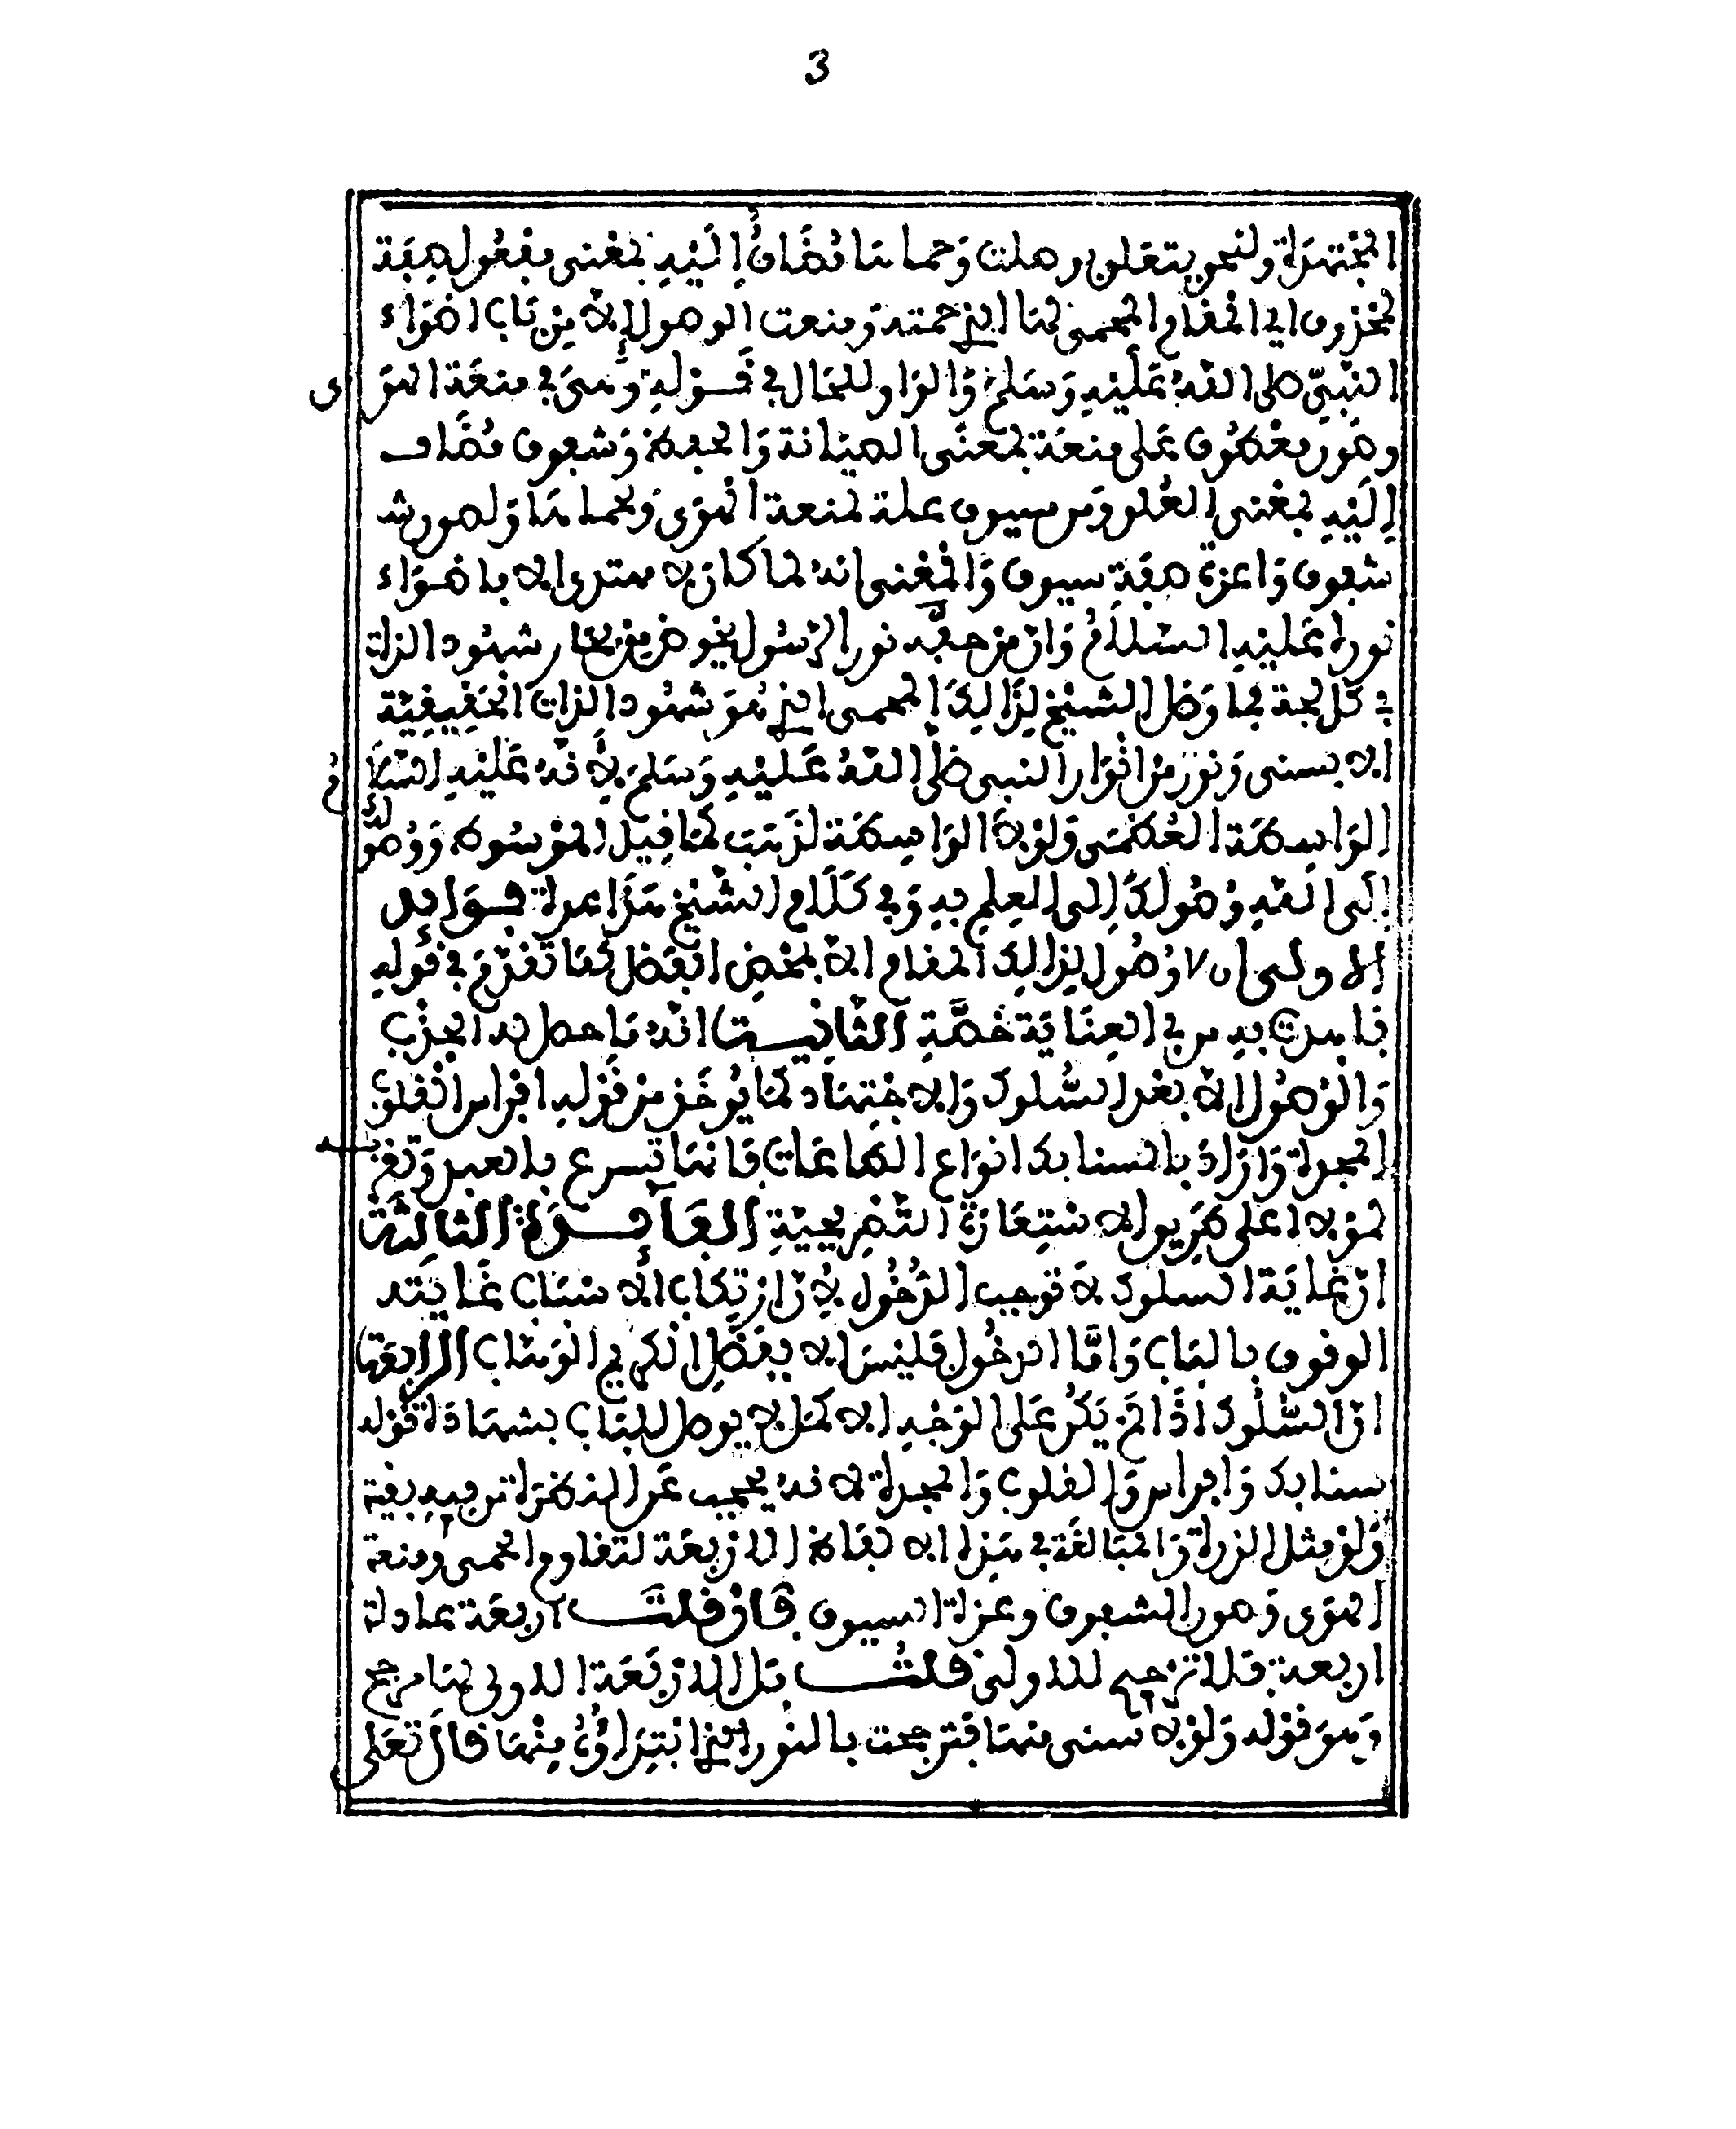 3
المجتهدة ولنحو يتعلق وصلت وحماها مضاف إليه بمعنى مفعول صفة
لمحذوف اي المقام المحمى لها الذي حمته ومنعت الوصول إلا من باب اضواء
النبي صلى الله عليه وسلم والواو للحال في قوله وهي في منعة الهوى
وصور معطوف على منعة بمعنى الصيانة والحفظ وشعوف مضاف
إليه بمعنى العلو ومن سيوف علة لمنعة الهوى وبحماها ولصور
شعوف واعزة صفة سيوف والمعنى انه لما كان لا يهتدى الا باضواء
نوره عليه السلام وان من حفه نور الرسول يخوض من بحار شهود الذات
في كل لجة فما وصل الشيخ لذالك المحمى الذي هو شهود الذات الحقيقية
الا بسنى ونور من انوار النبي صلى الله عليه وسلم لأنه عليه السلام
الواسطة العظمى ولولا الواسطة لذهب كما قيل الموسوط ووصوله
إلى الله وصولك إلى العلم به وفي كلام الشيخ هذا عدة فوائد
الاولى ان لا وصول لذالك المقام الا بمحض الفضل كما تقدم في قوله
فابدت به من في العناية خصة الثانية انه ما حصل له الجذب
والوصول الا بعد السلوك والاجتهاد كما يؤخذ من قوله افراس القلوب
المجدة واراد بالسنابك انواع الطاعات فانها تسرع بالعبد وتقربه
لمولاه على طريق الاستعارة التصريحية الفائدة الثالثة
ان غاية السلوك لا توجب الدخول لأن ارتكاب الأسباب غايته
الوقوف بالباب واما الدخول فليس الا بفضل الكريم الوهاب الرابعة
ان السلوك اذا لم يكن على الوجه الاكمل لا يوصل للباب بشهادة قوله
سنابك وافراس والقلوب والمجدة لانه يحجب عن الحضرة من فيه بقية
ولو مثل الذرة والمبالغة في هذا الالفاظ الاربعة لتقاوم الحمى ومنعة
الهوى وصور الشعوف وعزة السيوف فان قلت اربعة عادلة
اربعة فلا ترجيح للاولى قلت بل للاربعة الاولى لها مرجح
وهو قوله ولولا سنى منها فترجحت بالنور الذي ابتداؤه منها قال تعلى